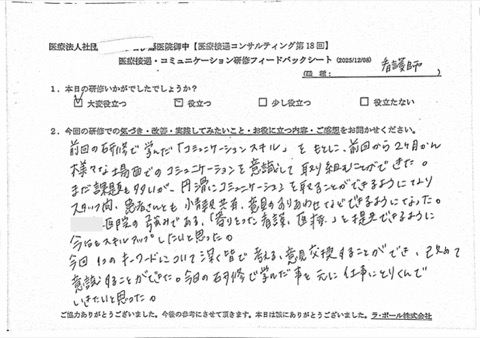 医療法人社団 医院御中【医療接遇コンサルティング第18回】
医療接遇・コミュニケーション研修フィードバックシート (2025/12/08)
(職種: 看護師 )
1. 本日の研修いかがでしたでしょうか?
☑大変役立つ □役立つ □少し役立つ □役立たない
2. 今回の研修での気づき・改善・実践してみたいこと・お役に立つ内容・ご感想をお聞かせください。
前回の研修で学んだ「コミュニケーションスキル」をもとに、前回から2ヶ月かん
様々な場面でのコミュニケーションを意識して取り組むことができた。
まだ課題も多いが、円滑にコミュニケーションを取ることができるようになり
スタッフ間、患者さんとも 情報共有、意見のすりあわせなどできるようになった。
医院の強みである、「寄りそった看護、医療」を提史できるように
今後もスキルアップしたいと思った。
今回 1つのキーワードについて深く皆で考える、意見交換することができ、改めて
意識することができた。今日の研修で学んだ事を元に仕事にとりくんで
いきたいと思った。
ご協力ありがとうございました。今後の参考にさせて頂きます。本日は誠にありがとうございました。ラ・ポール株式会社